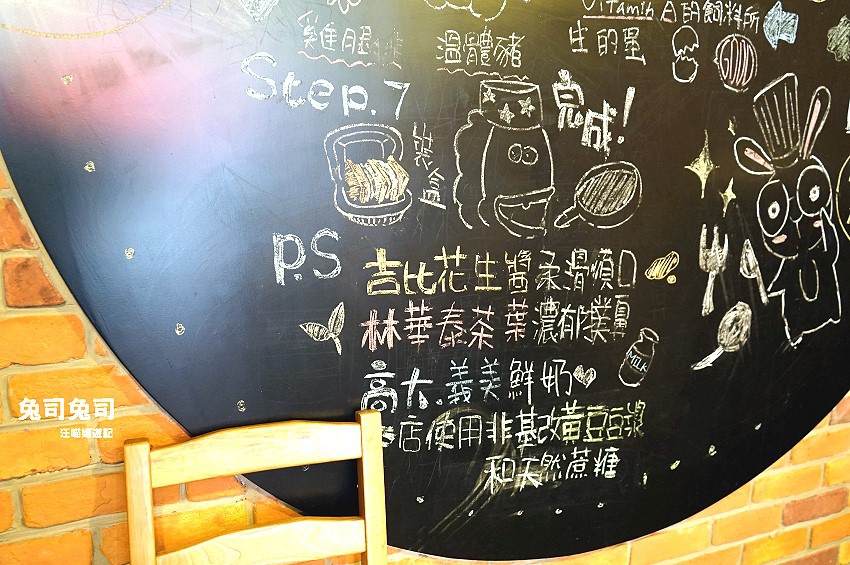 Vitamin A的飼料所
雞腿排 溫體豬 生的蛋
GOOD
Step.7
裝盒
完成!
P.S
吉比花生醬柔滑順口
林華泰茶葉濃郁撲鼻
MILK
高大.義美鮮奶
店使用非基改黃豆豆漿
和天然蔗糖
兔司兔司
汪喵喵遊記